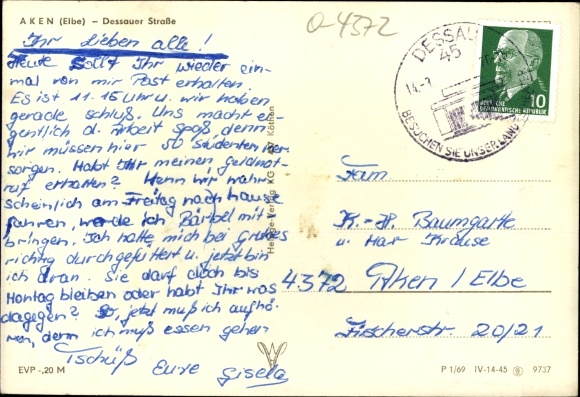 O-4372
AKEN (Elbe) – Dessauer Straße
Ihr Lieben alle!
Heute sollt Ihr wieder ein-
mal von mir Post erhalten.
Es ist 11.15 Uhr u. wir haben
gerade schluß. Uns macht ei-
gentlich d. Arbeit Spaß, denn
wir müssen hier 50 Studenten ver-
sorgen. Habt Ihr meinen
ruf erhalten? Wenn wir wahr-
scheinlich am Freitag nach hause
fahren, werde ich Bärbel mit-
bringen. Ich hatte mich bei
richtig durchgefuttert u. jetzt bin
ich dran. Sie darf doch bis
Montag bleiben oder habt Ihr was
dagegen? So, jetzt muß ich aufhö-
ren, denn ich muß essen gehen
Tschüß
Eure Gisela
DESSAU
45
14.-7.
BESUCHEN SIE UNSER
DEUTSCHE
DEMOKRATISCHE REPUBLIK
10
Fam
K.-H. Baumgarte
u. Har. Krause
4372 Aken / Elbe
Fischerstr. 20/21
Köthen
EVP -,20 M
P 1/69 IV-14-45 9737